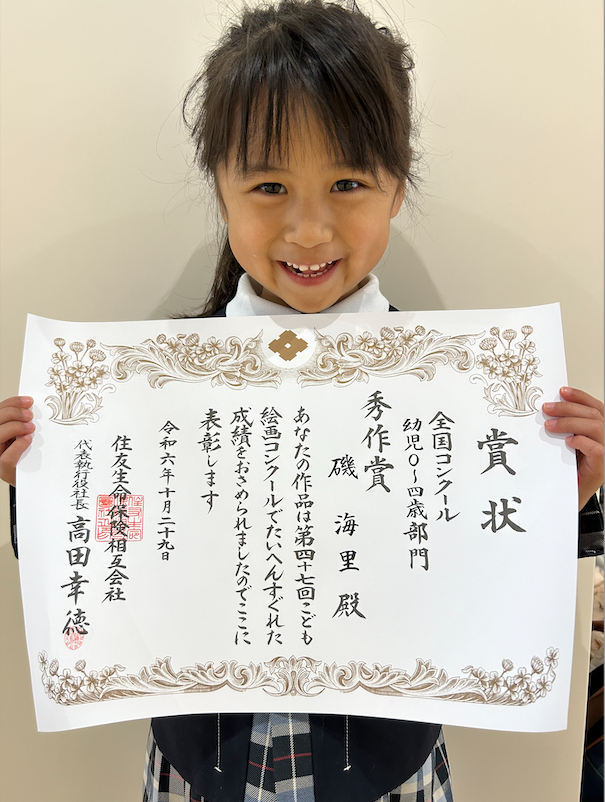 賞状
全国コンクール
幼児0〜四歳部門
秀作賞
磯海里殿
あなたの作品は第四十七回こども
絵画コンクールでたいへんすぐれた
成績をおさめられましたのでここに
表彰します
令和六年十月二十九日
住友生命保険相互会社
代表執行役社長 高田幸徳